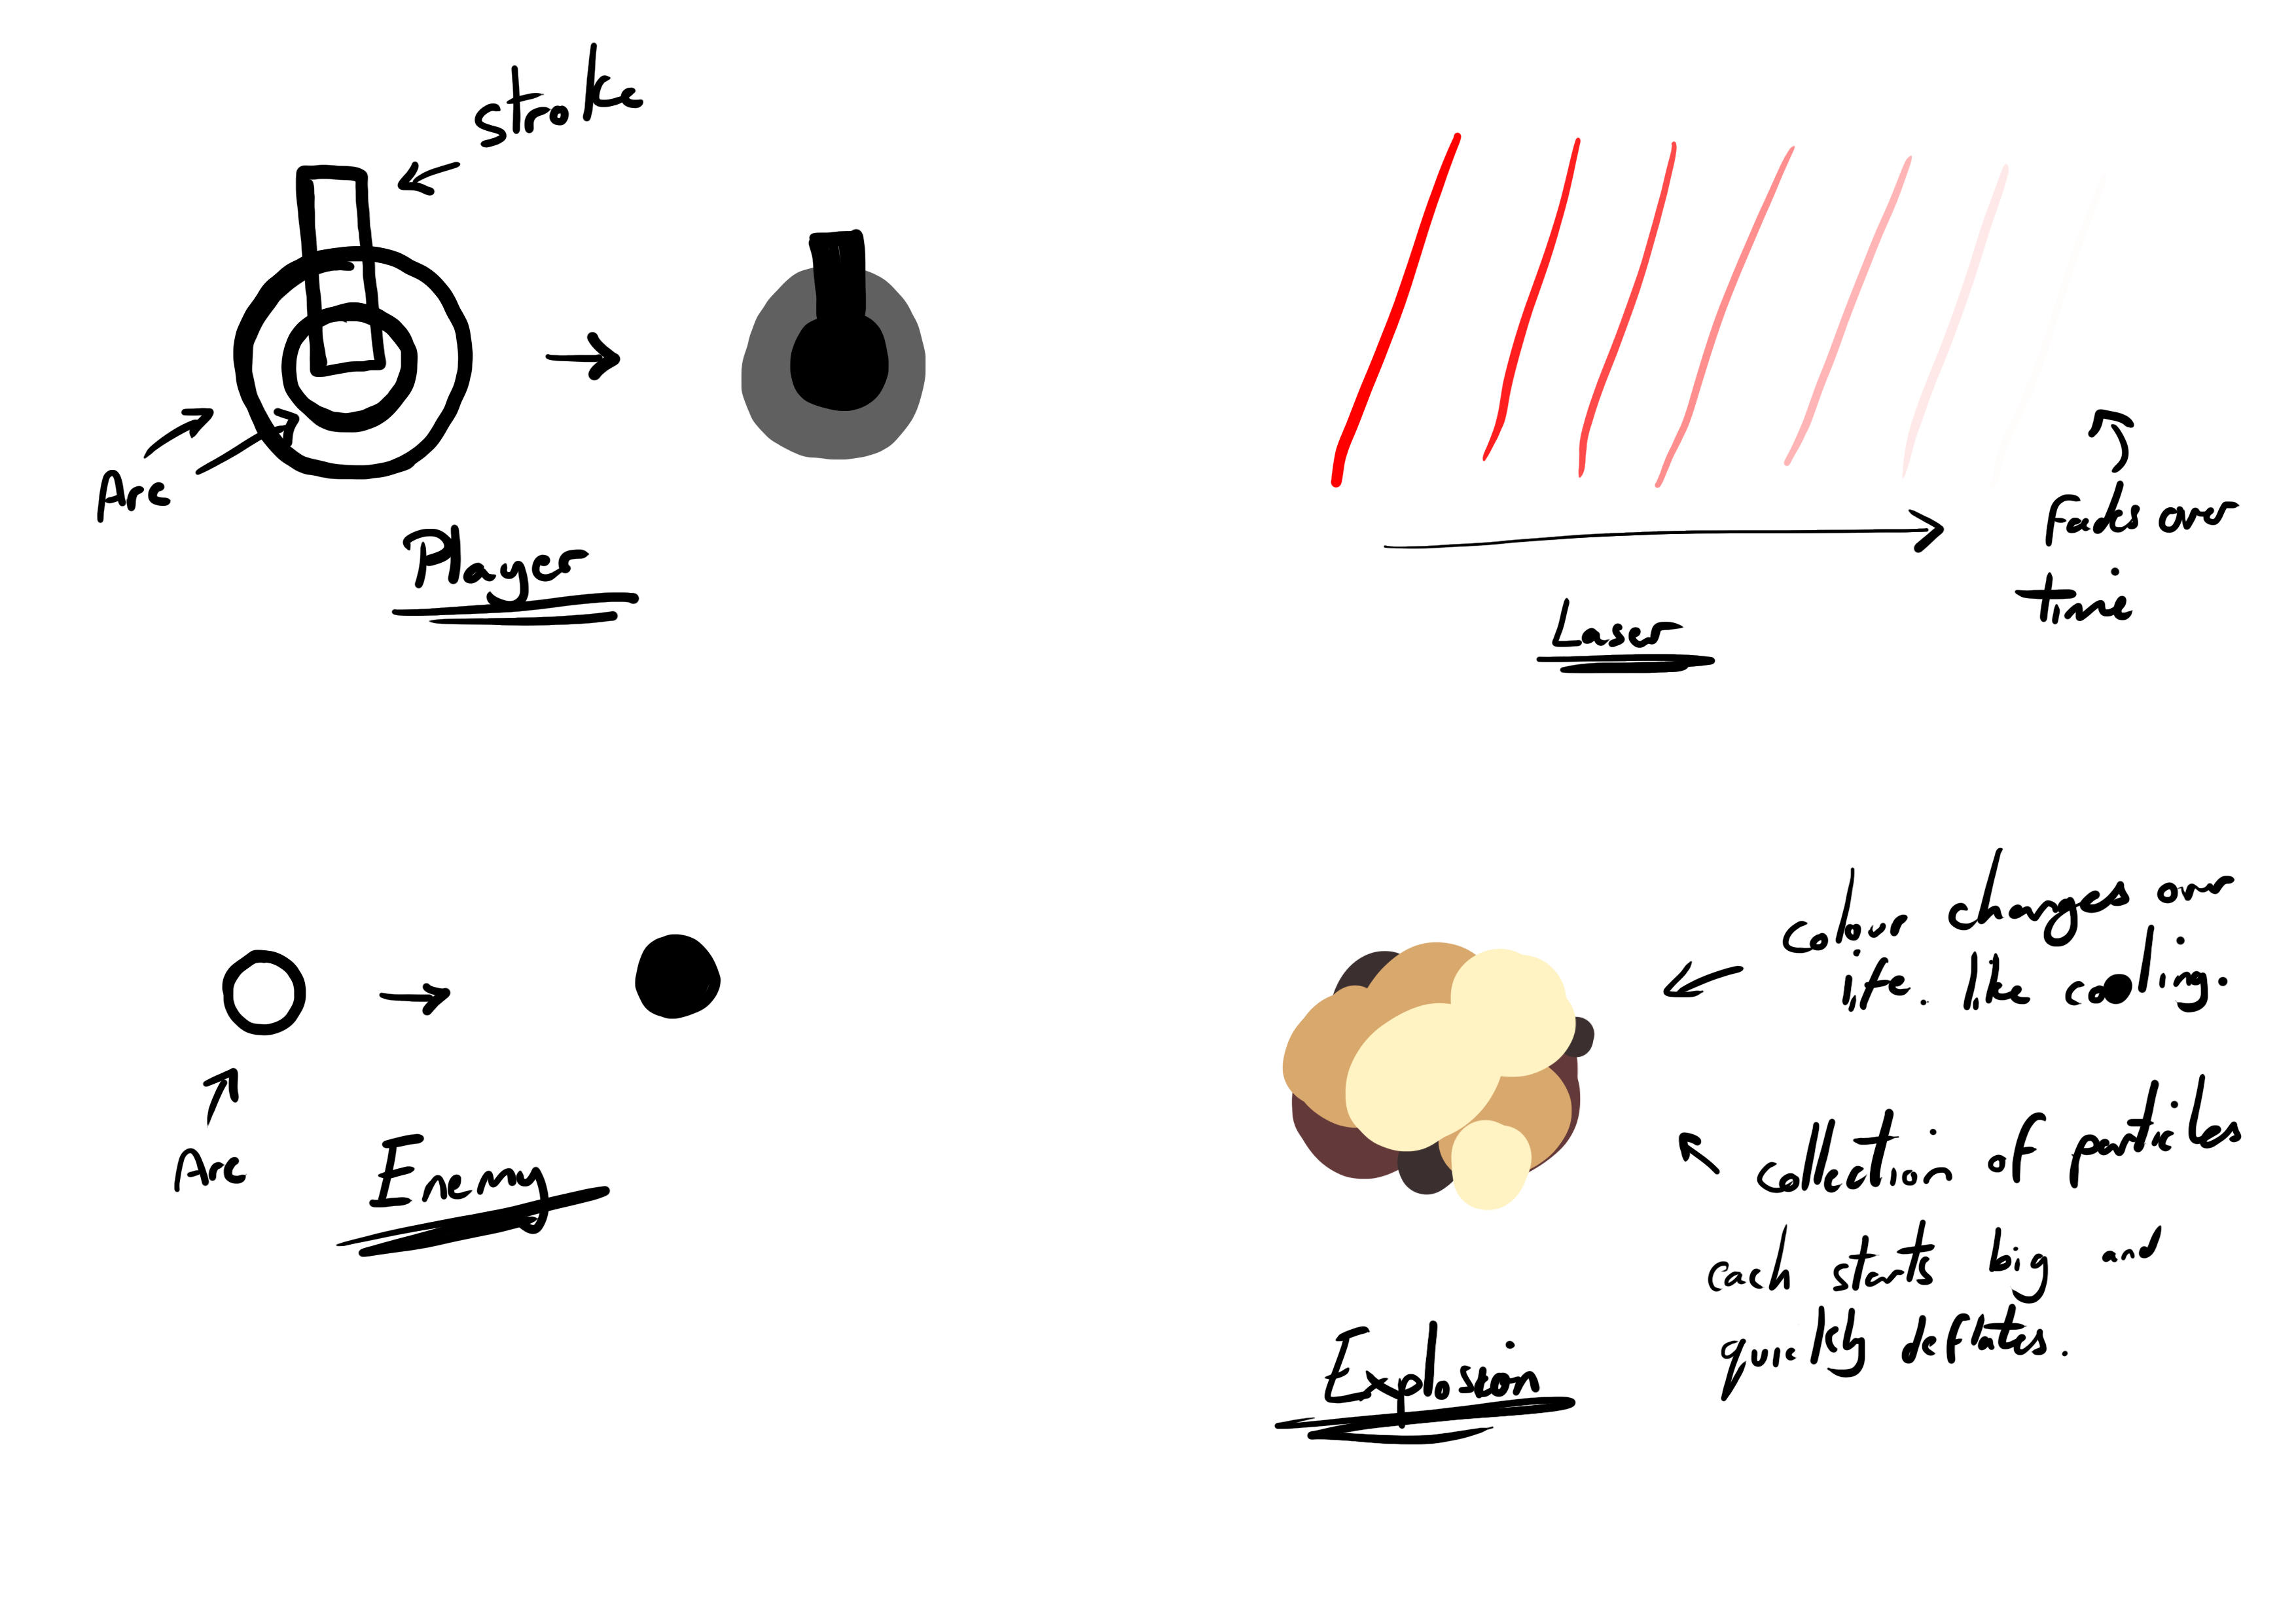 stroke
Arc
Player
Fades over
time
Laser
Arc
Enemy
Colour changes over
life. like cooling.
collection of particles
each starts big and
quickly deflates.
Explosion